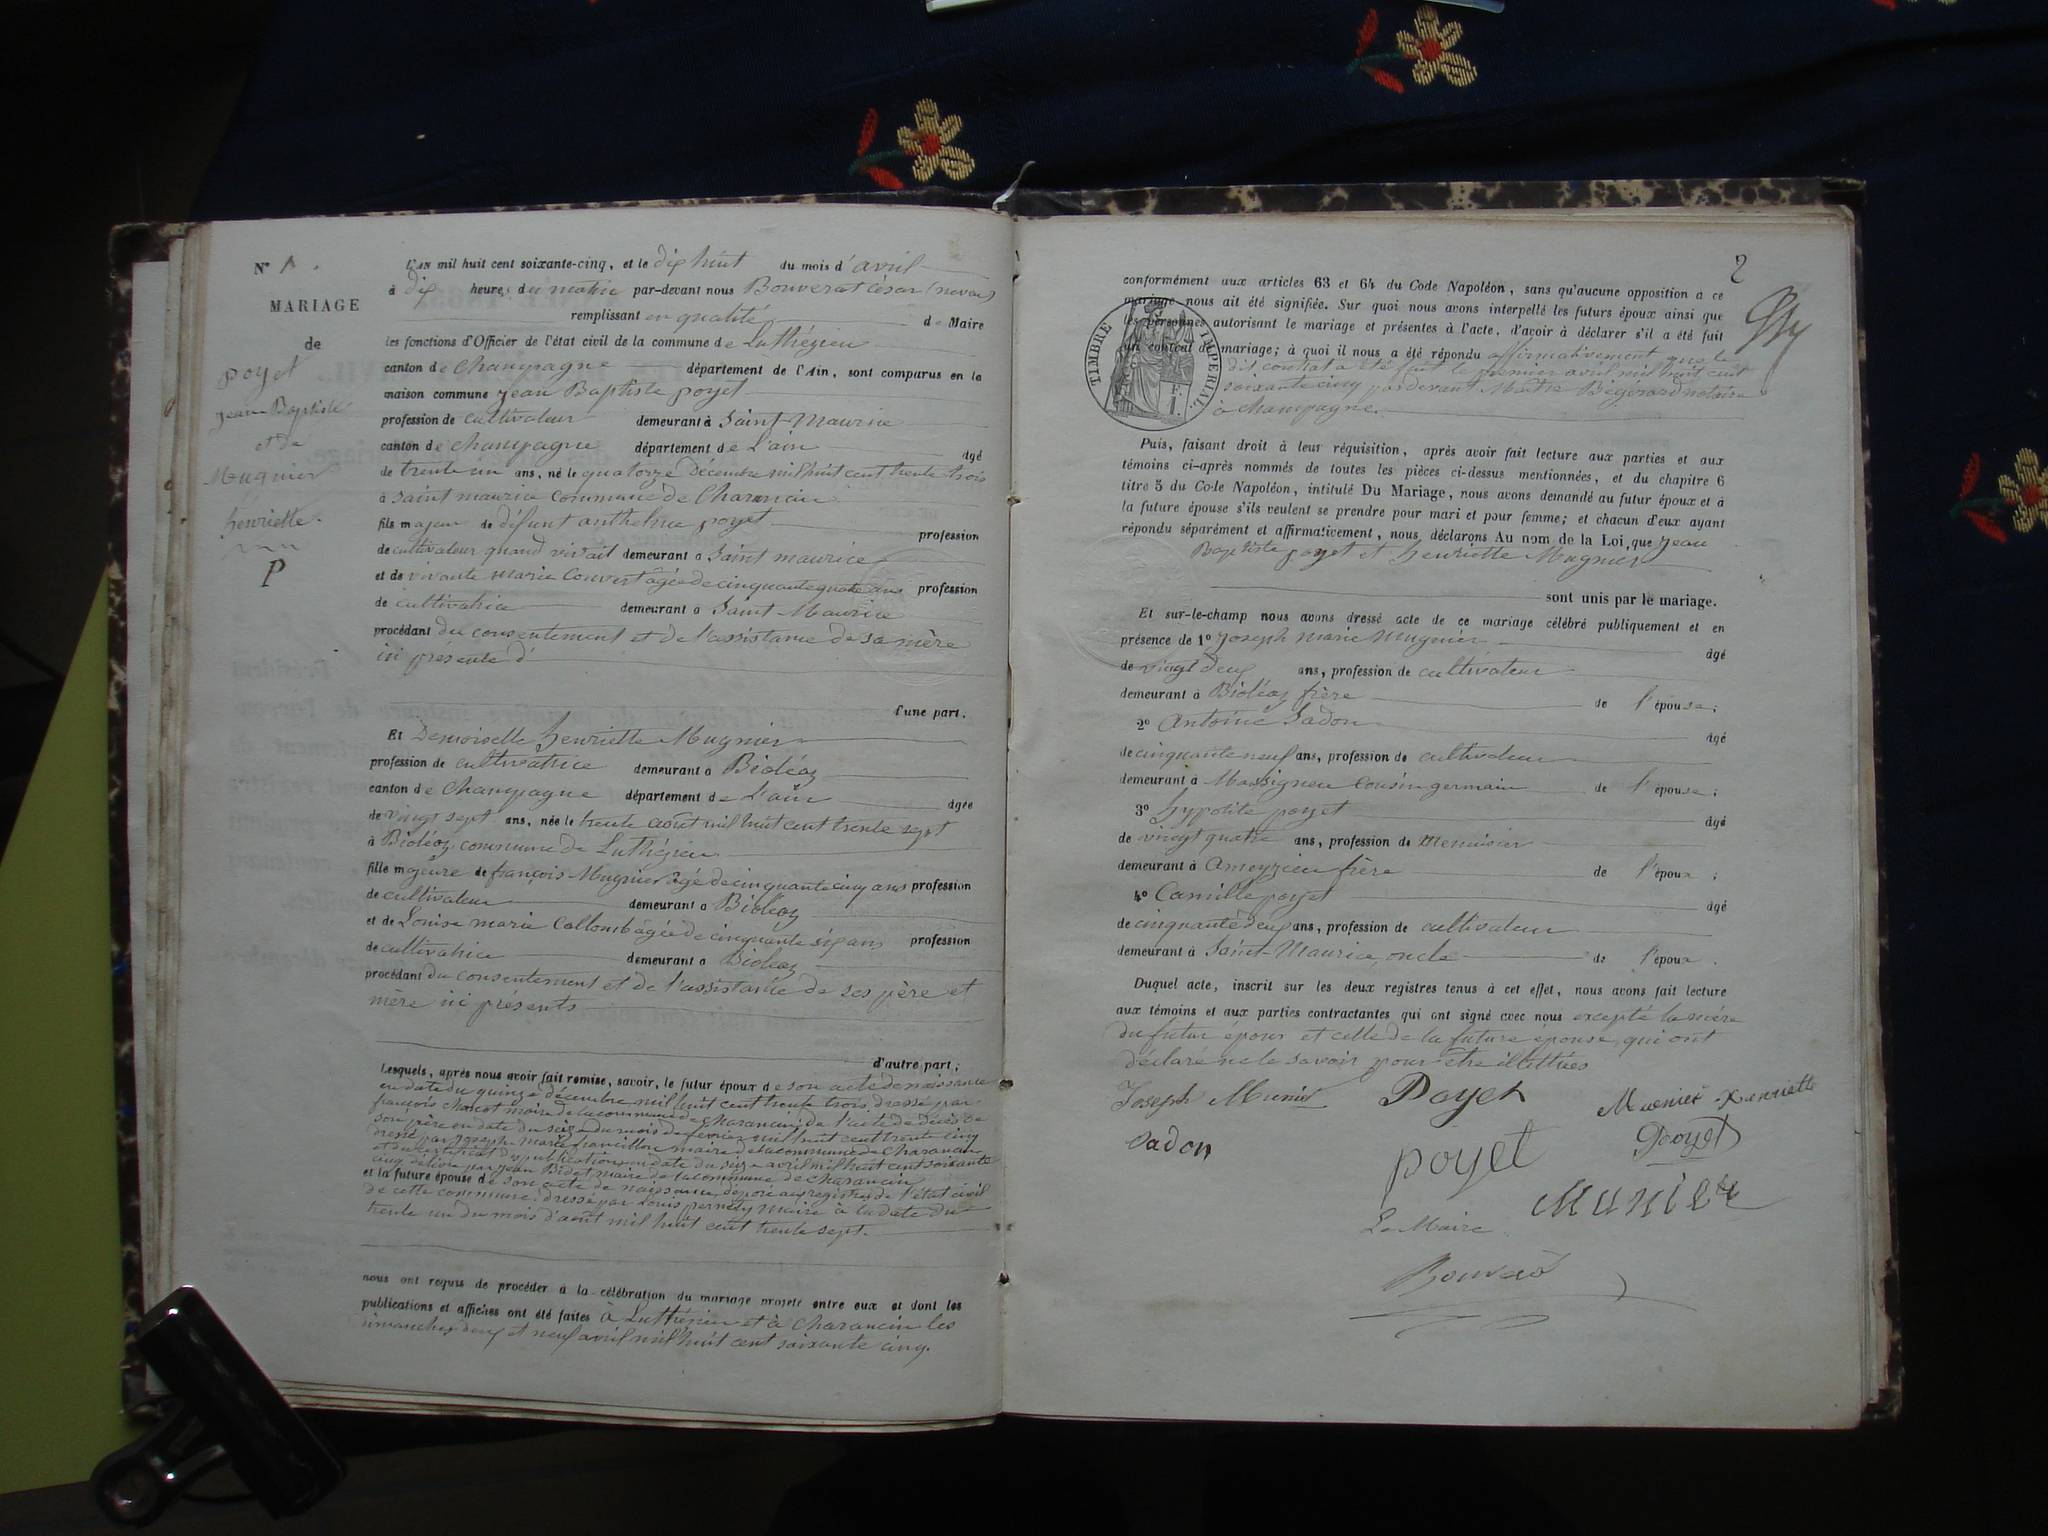 N° 1.
MARIAGE
de
poyet
Jean Baptiste
et de
Mugnier
henriette.
P
L'AN mil huit cent soixante-cinq, et le dix huit du mois d'avril
à dix heures du matin par-devant nous Bouverat César (neveu)
remplissant en qualité de Maire
les fonctions d'Officier de l'état civil de la commune de Luthézieu
canton de Champagne département de l'Ain, sont comparus en la
maison commune Jean Baptiste poyet
profession de cultivateur demeurant à Saint Maurice
canton de Champagne département de L'ain âgé
de trente un ans, né le quatorze décembre mil huit cent trente trois
à Saint maurice Commune de Charancin
fils majeur de défunt anthelme poyet profession
de cultivateur quand vivait demeurant à Saint maurice
et de vivante marie Convert âgée de cinquante quatre ans profession
de cultivatrice demeurant à Saint Maurice
procédant du consentement et de l'assistance de sa mère
ici présente d
l'une part.
Et Demoiselle henriette Mugnier
profession de cultivatrice demeurant à Bioléaz
canton de Champagne département de L'ain âgée
de vingt sept ans, née le trente août mil huit cent trente sept
à Bioléaz commune de Luthézieu
fille majeure de françois Mugnier âgé de cinquante cinq ans profession
de cultivateur demeurant à Bioléaz
et de Louise marie Collomb âgée de cinquante six ans profession
de cultivatrice demeurant à Bioléaz
procédant du consentement et de l'assistance de ses père et
mère ici présents
d'autre part;
Lesquels, après nous avoir fait remise, savoir, le futur époux de son acte de naissance
en date du quinze décembre mil huit cent trente trois dressé par
françois chacot maire de la commune de charancin; de l'acte de décès de
son père en date du seize du mois de fevrier mil huit cent trente cinq
dressé par joseph marie francillon maire de la commune de charancin
et du certificat de publications en date du seize avril mil huit cent soixante
cinq délivré par jean Bidet maire de la commune de charancin
et la future épouse de son acte de naissance déposé aux registres de l'état civil
de cette commune, dressé par Louis pernety maire à la date du
trente un du mois d'août mil huit cent trente sept.
nous ont requis de procéder à la célébration du mariage projeté entre eux et dont les
publications et affiches ont été faites à Luthézieu et à charancin les
dimanches deux et neuf avril mil huit cent soixante cinq.
2
conformément aux articles 63 et 64 du Code Napoléon, sans qu'aucune opposition à ce
mariage nous ait été signifiée. Sur quoi nous avons interpellé les futurs époux ainsi que
les personnes autorisant le mariage et présentes à l'acte, d'avoir à déclarer s'il a été fait
un contrat de mariage; à quoi il nous a été répondu affirmativement que le
dit contrat a été fait le premier avril mil huit cent
soixante cinq par devant Maître Bégérard notaire
à champagne.
TIMBRE IMPERIAL
Puis, faisant droit à leur réquisition, après avoir fait lecture aux parties et aux
témoins ci-après nommés de toutes les pièces ci-dessus mentionnées, et du chapitre 6
titre 5 du Code Napoléon, intitulé Du Mariage, nous avons demandé au futur époux et à
la future épouse s'ils veulent se prendre pour mari et pour femme; et chacun d'eux ayant
répondu séparément et affirmativement, nous déclarons Au nom de la Loi, que Jean
Baptiste poyet et henriette Mugnier
sont unis par le mariage.
Et sur-le-champ nous avons dressé acte de ce mariage célébré publiquement et en
présence de 1° Joseph marie mugnier âgé
de vingt deux ans, profession de cultivateur
demeurant à Bioléaz frère de l'épouse;
2° Antoine Sadon âgé
de cinquante neuf ans, profession de cultivateur
demeurant à Massigneu cousin germain de l'épouse;
3° hypolite poyet âgé
de vingt quatre ans, profession de Menuisier
demeurant à Ameyzieu frère de l'époux;
4° Camille poyet âgé
de cinquante deux ans, profession de cultivateur
demeurant à Saint-Maurice, oncle de l'époux.
Duquel acte, inscrit sur les deux registres tenus à cet effet, nous avons fait lecture
aux témoins et aux parties contractantes qui ont signé avec nous excepté la mère
du futur époux et celle de la future épouse, qui ont
déclaré ne le savoir pour être illettrées
Joseph Munier Poyet Muenier Henriette
Sadon poyet Poyet
Munier
Le Maire
Bouverat